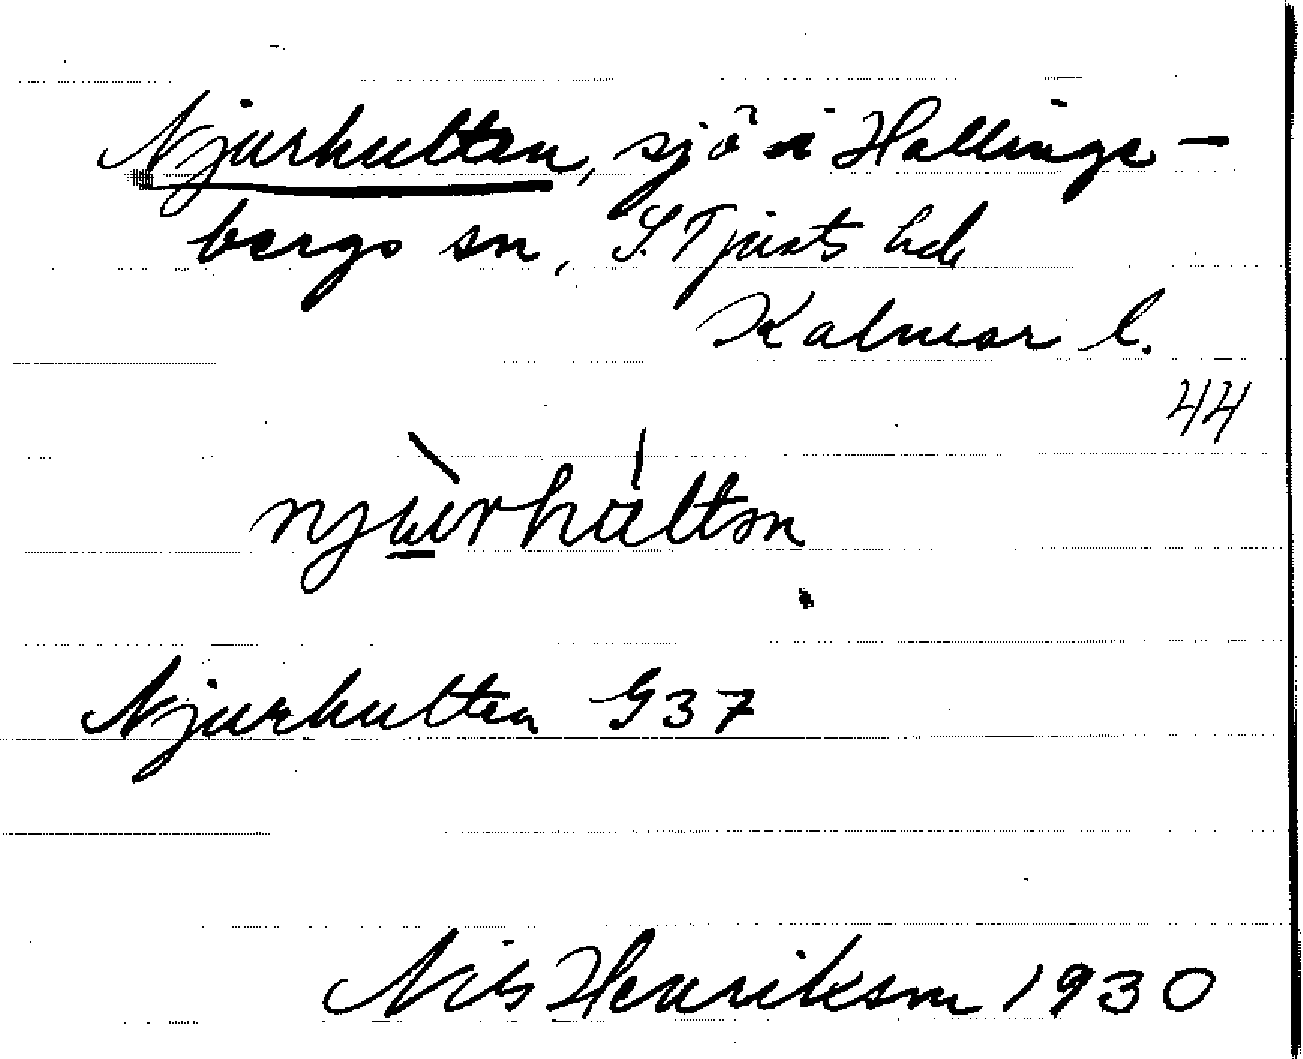 Njurhulten, sjö i Hallings-
bergs sn, S. Tjusts hd
Kalmar l.
44
njùrhúltņ
Njurhulten G37
Nils Henrikson 1930